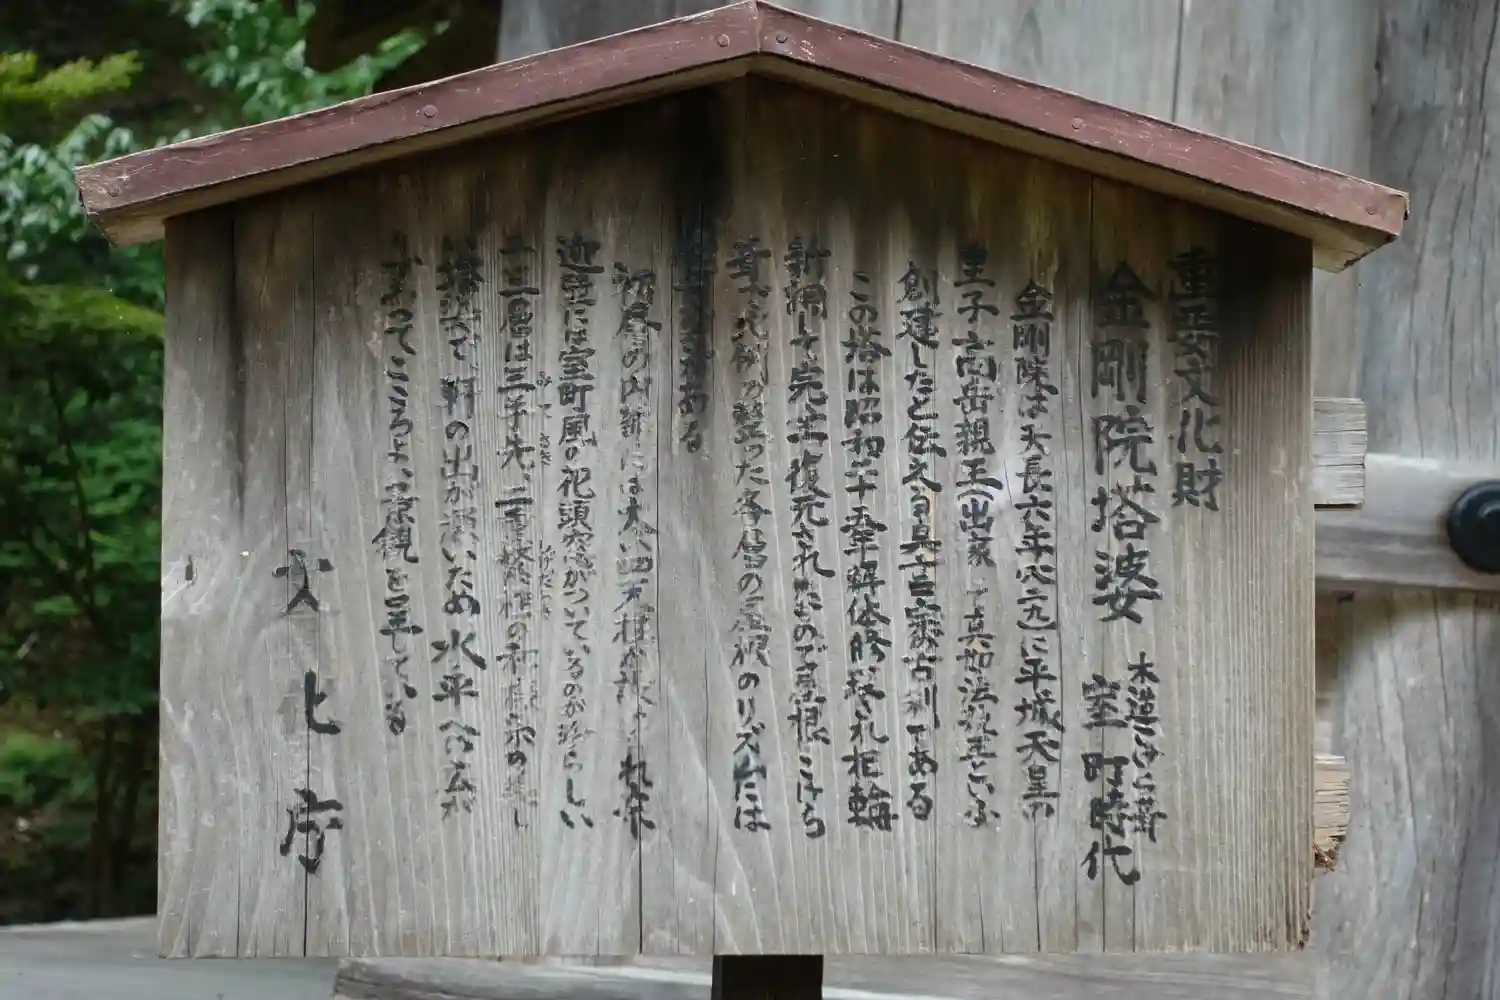 重要文化財
金剛院塔婆 室町時代
木造こけら葺
金剛院は天長六年(八二九)に平城天皇の
皇子高岳親王(出家して真如法親王という
創建したと伝える真言密古刹である
この塔は昭和三十五年解体修理され相輪
新補して完全復元されたもので屋根こけら
葺 の整った各層の屋根のリズムには
ある
初層の内部には太い四天柱が 礼拝
迎壁には室町風の花頭窓がついているのが珍らしい
二三層は三手先、二重 の和 の美し
塔婆で、軒の出が深いため水平への広が
ってこころよい景観を呈している
文化庁
みてさき